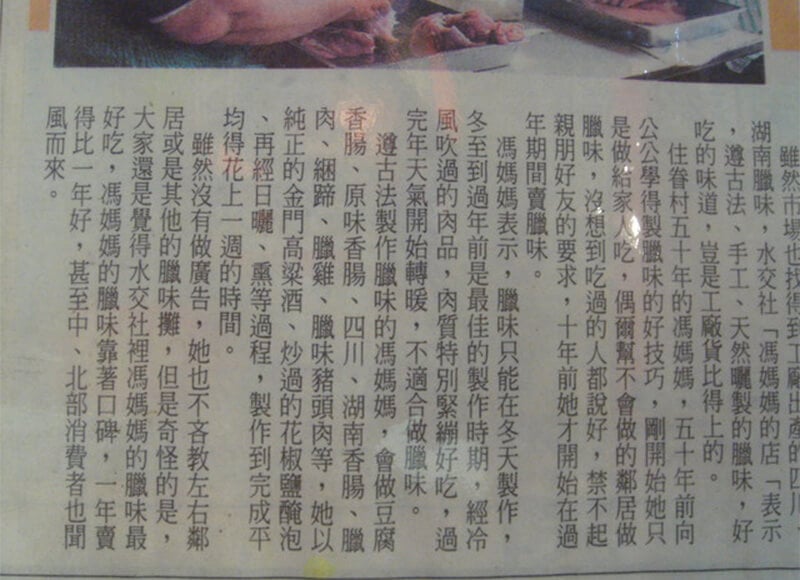 雖然市場也找得到工廠出產的四川、
湖南臘味，水交社「馮媽媽的店「表示
，遵古法、手工、天然曬製的臘味，好
吃的味道，豈是工廠貨比得上的。
住眷村五十年的馮媽媽，五十年前向
公公學得製臘味的好技巧，剛開始她只
是做給家人吃，偶爾幫不會做的鄰居做
臘味，沒想到吃過的人都說好，禁不起
親朋好友的要求，十年前她才開始在過
年期間賣臘味。
馮媽媽表示，臘味只能在冬天製作，
冬至到過年前是最佳的製作時期，經冷
風吹過的肉品，肉質特別緊繃好吃，過
完年天氣開始轉暖，不適合做臘味。
遵古法製作臘味的馮媽媽，會做豆腐
香腸、原味香腸、四川、湖南香腸、臘
肉、綑蹄、臘雞、臘味豬頭肉等，她以
純正的金門高粱酒、炒過的花椒鹽醃泡
、再經日曬、熏等過程，製作到完成平
均得花上一週的時間。
雖然沒有做廣告，她也不吝教左右鄰
居或是其他的臘味攤，但是奇怪的是，
大家還是覺得水交社裡馮媽媽的臘味最
好吃，馮媽媽的臘味靠著口碑，一年賣
得比一年好，甚至中、北部消費者也聞
風而來。